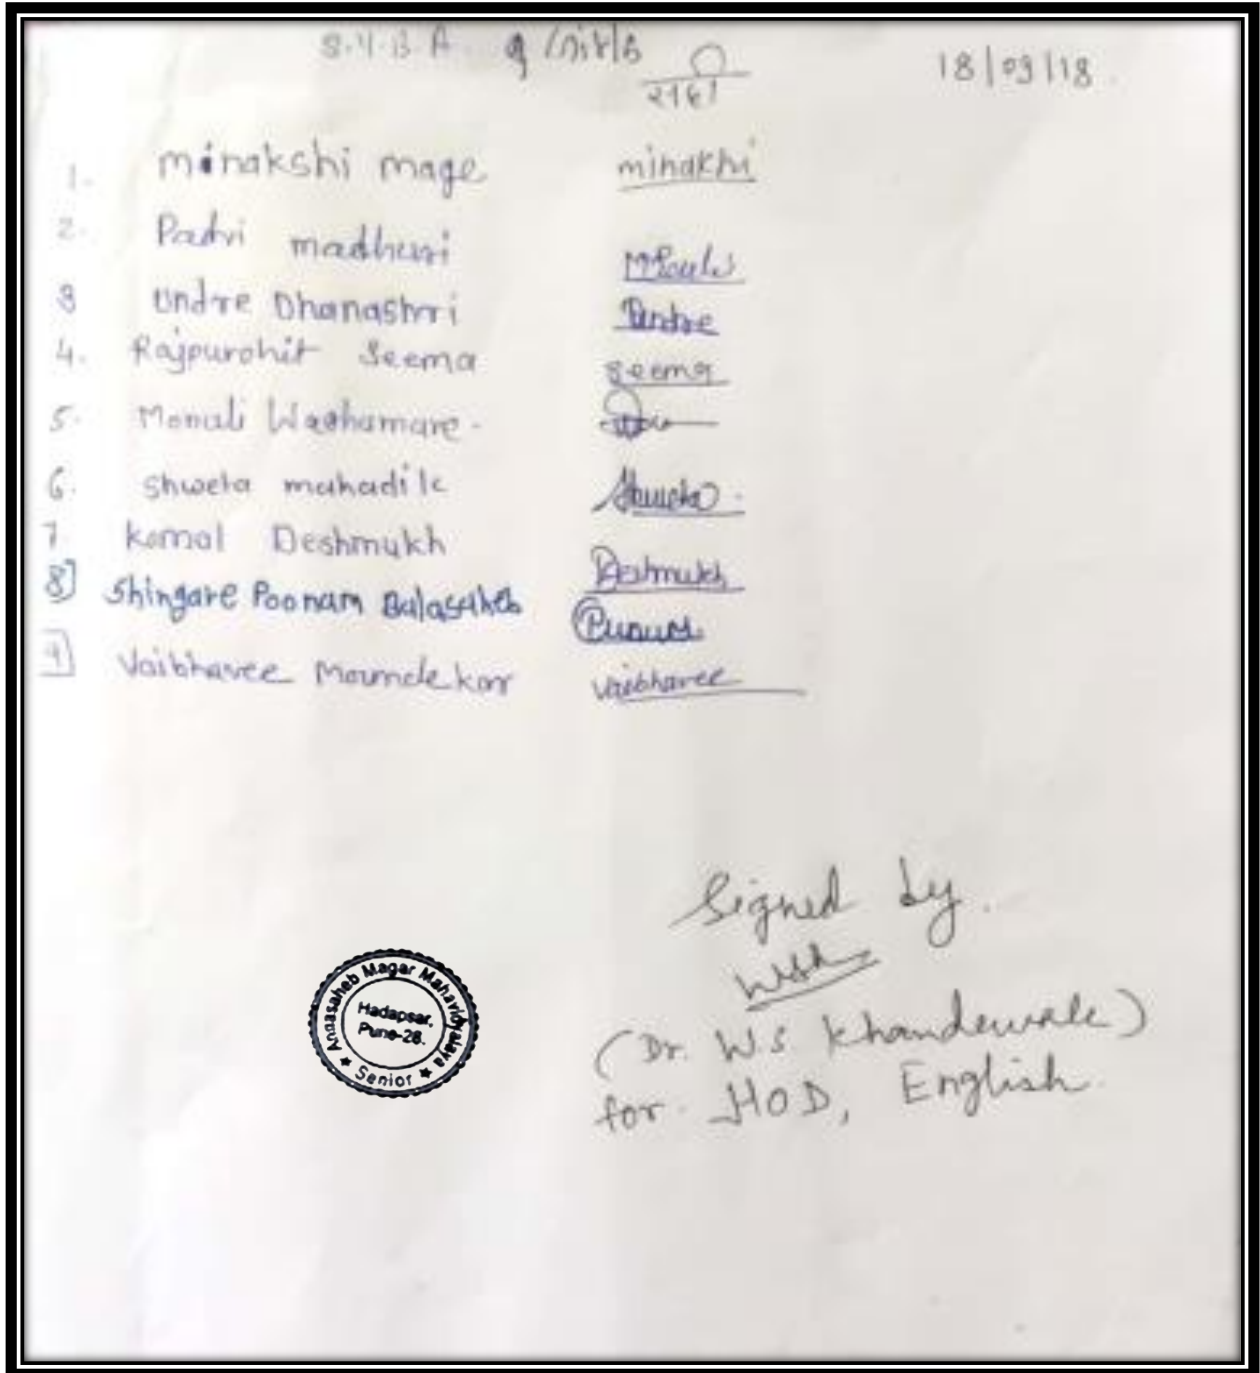 S.Y.B.A 18/09/18
सही
1. minakshi mage minakhi
2. Padvi madhuri
3 Undre Dhanashri Undre
4. Rajpurohit Seema Seema
5. Monali Waghamare.
6. Shweta mahadik Shweta.
7. komal Deshmukh Deshmukh
8] Shingare Poonam Balasaheb
9] Vaibhavee Moundekar Vaibhavee
Signed by.
(Dr. W.S. Khandewale)
for HOD, English.
Annasaheb Magar Mahavidyalaya
Hadapsar,
Pune-28.
★ Senior ★